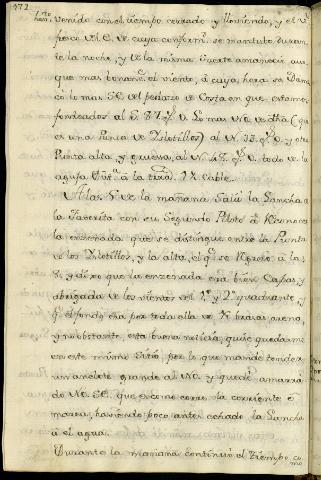 172
venido con el tiempo cerrado y lloviendo, y el v.
fresco del E. de cuya conform.d se mantubo duran-
te la noche, y de la misma suerte amaneció aun-
que mas bonanc.e el viento, á cuya hora se
lo mas SE. del pedazo de Costa en que estamos
fondeados al S. 87 g.s O. Lo mas NO. de dha (que
es una Punta de Islotillos) al N. 33 g.s O. y otra
Punta alta, y gruesa, al N. 42 g.s O. todo de la
aguja á la tierra. 1½ Cable.
A las 5 de la mañana Salió la Lancha a
la Favorita con su Segundo Piloto á Reconocer
la ensenada que se distingue entre la Punta
de los Islotillos, y la alta, el q.e se Retiró á las
8. y dixo que la ensenada era bien Capaz, y
abrigada de los vientos del 1.º y 2.º quadrante, y
q.e el fondo era por toda ella de brazas, arena,
y no obstante, esta buena noticia, quise quedarme
en este mismo Sitio, por lo que mandé tender
un anclote grande al NO. y quedé amarra-
do NO. SE. que es como corre la corriente ó
marea, haviendo poco antes echado la Lancha
á el agua.
Durante la mañana continuó el tiempo co-
mo